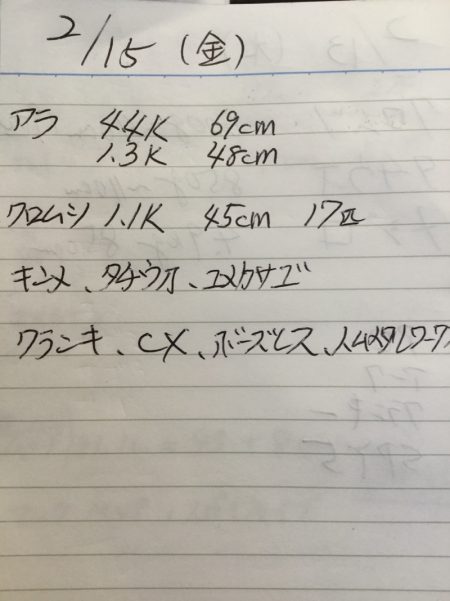 2/15 (金)
アラ 4.4K 69cm
1.3K 48cm
クロムシ 1.1K 45cm 17匹
キンメ、タチウオ、ユメカサゴ
クランキ、CX、ボーズヒス、